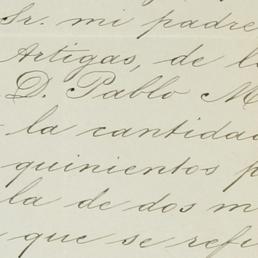 Sr. mi padre
Artigas, de la
D. Pablo M
la cantidad
quinientos p
la de dos m
que se refi